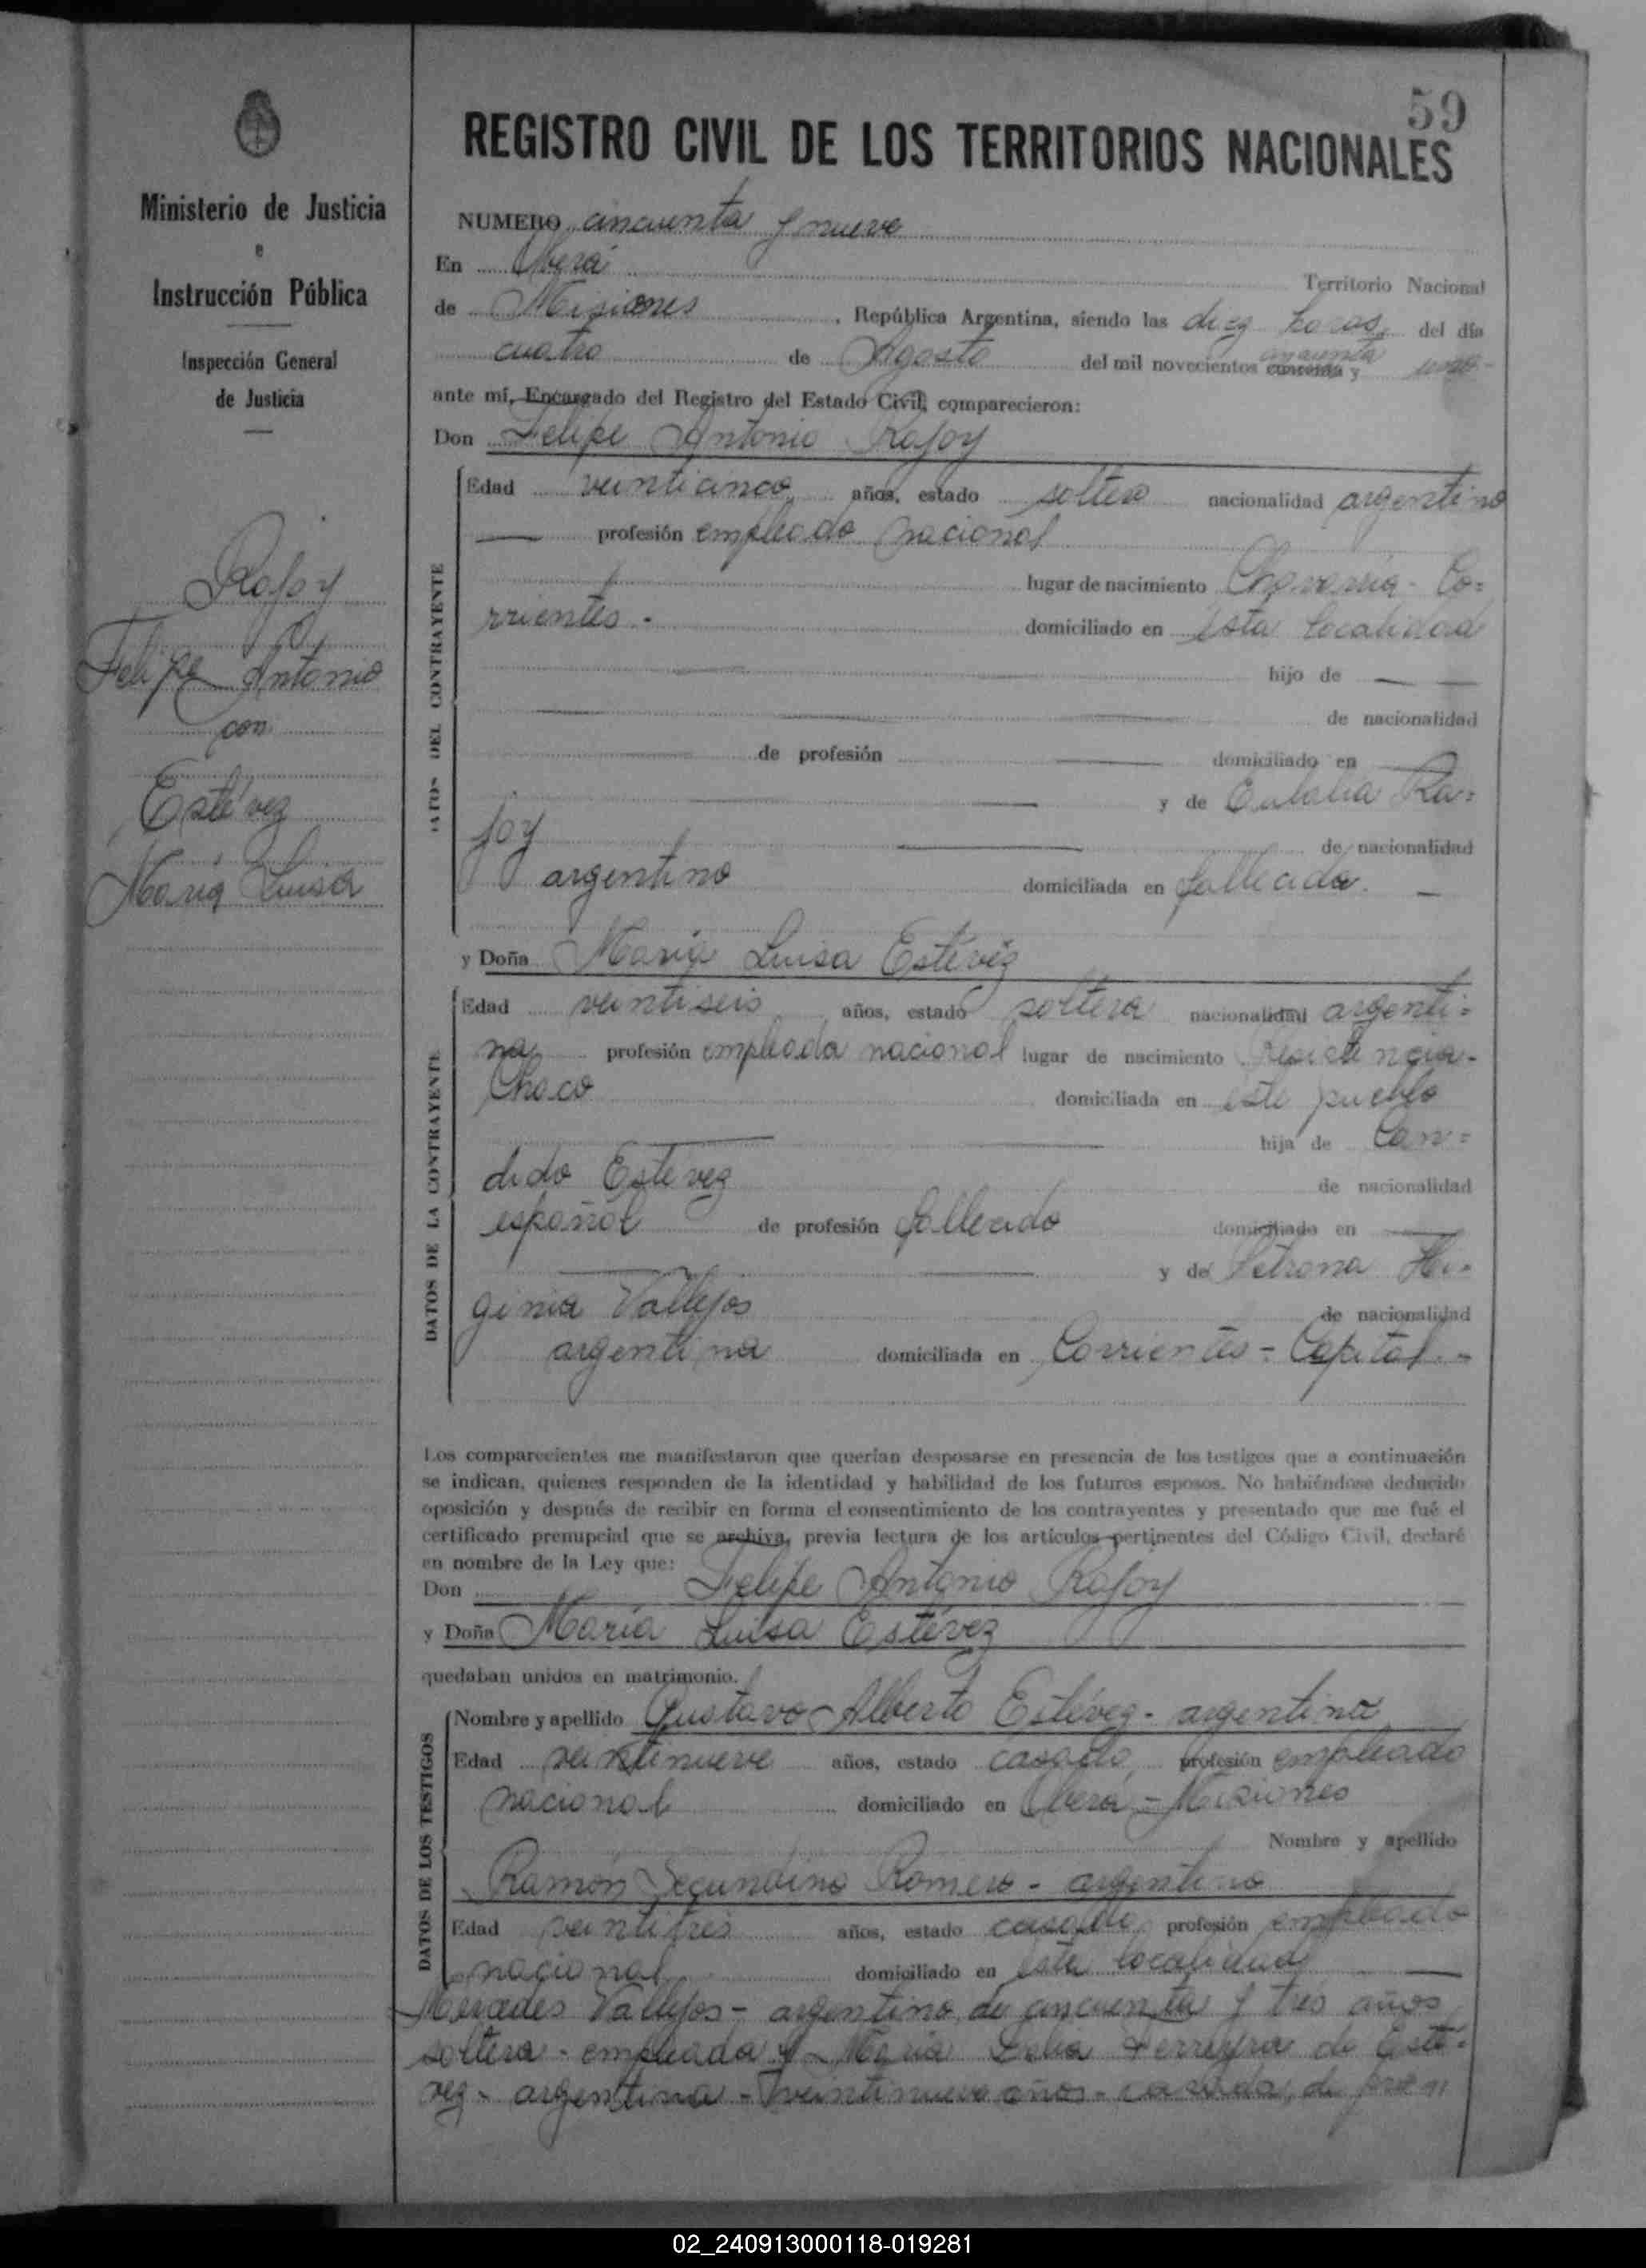 Ministerio de Justicia
e
Instrucción Pública
Inspección General
de Justicia
Rajoy
Felipe Antonio
con
Estévez
María Luisa
59
REGISTRO CIVIL DE LOS TERRITORIOS NACIONALES
NUMERO cincuenta y nueve
En Oberá Territorio Nacional
de Misiones, República Argentina, siendo las diez horas, del día
cuatro de Agosto del mil novecientos cincuenta y uno -
ante mí, Encargado del Registro del Estado Civil, comparecieron:
Don Felipe Antonio Rajoy
DATOS DEL CONTRAYENTE
Edad veinticinco años, estado soltero nacionalidad argentino
profesión empleado nacional
lugar de nacimiento Chavarría - Co=
rrientes - domiciliado en ésta localidad
hijo de
de nacionalidad
de profesión domiciliado en
y de Eulalia Ra=
joy de nacionalidad
argentino domiciliada en fallecida. -
y Doña María Luisa Estévez
DATOS DE LA CONTRAYENTE
Edad veintiseis años, estado soltera nacionalidad argenti=
na profesión empleada nacional lugar de nacimiento Resistencia -
Chaco domiciliada en este pueblo
hija de Can=
dido Estevez de nacionalidad
español de profesión fallecido domiciliado en
y de Petrona Hi=
ginia Vallejos de nacionalidad
argentina domiciliada en Corrientes - Capital. -
Los comparecientes me manifestaron que querían desposarse en presencia de los testigos que a continuación
se indican, quienes responden de la identidad y habilidad de los futuros esposos. No habiéndose deducido
oposición y después de recibir en forma el consentimiento de los contrayentes y presentado que me fué el
certificado prenupcial que se archiva, previa lectura de los artículos pertinentes del Código Civil, declaré
en nombre de la Ley que:
Don Felipe Antonio Rajoy
y Doña María Luisa Estévez
quedaban unidos en matrimonio.
DATOS DE LOS TESTIGOS
Nombre y apellido Gustavo Alberto Estévez - argentino
Edad veintinueve años, estado casado, profesión empleado
nacional domiciliado en Oberá - Misiones
Nombre y apellido
Ramón Secundino Romero - argentino
Edad veintitres años, estado casado, profesión empleado
nacional domiciliado en ésta localidad
Mercedes Vallejos - argentino, de cincuenta y tres años
soltera - empleada y María Ferreyra de Esté=
vez - argentina - veintinueve años - casada, de
02_240913000118-019281